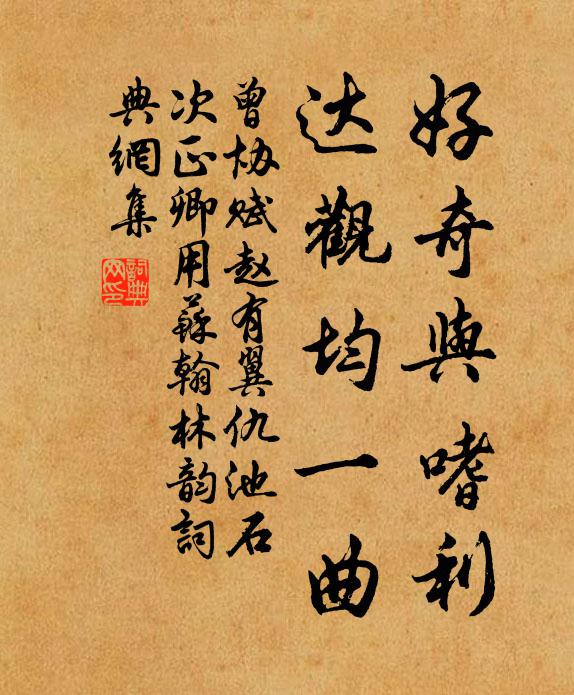 好奇與嗜利
达觀均一曲
曾协赋赵有翼仇池石
次正卿用蘇翰林韵詞
典網集
詞典
网印